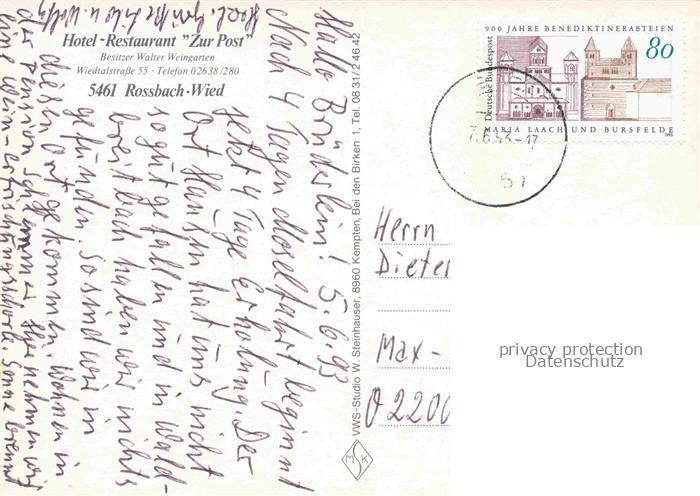 Hotel-Restaurant "Zur Post"
Besitzer Walter Weingarten
Wiedtalstraße 55 · Telefon 02638/280
5461 Rossbach·Wied
Hallo Brüderlein! 5.6.93
Nach 4 Tagen Moselfahrt beginnt
jetzt 4 Tage Erholung. Der
Ort Hausen hat uns nicht
so gut gefallen und in Wald-
breitbach haben wir nichts
gefunden. So sind wir in
diesen Ort gekommen. Wohnen in
der Pension
eine Wein-erfrischungsschorle. Sonne brennt
VWS-Studio W. Steinhauser, 8960 Kempten, Bei den Birken 1, Tel. 08 31/2 46 42
MSK
900 JAHRE BENEDIKTINERABTEIEN
Deutsche Bundespost
80
MARIA LAACH UND BURSFELDE
7.6.93-17
Herrn
Dieter
Max-
O 2200
privacy protection
Datenschutz